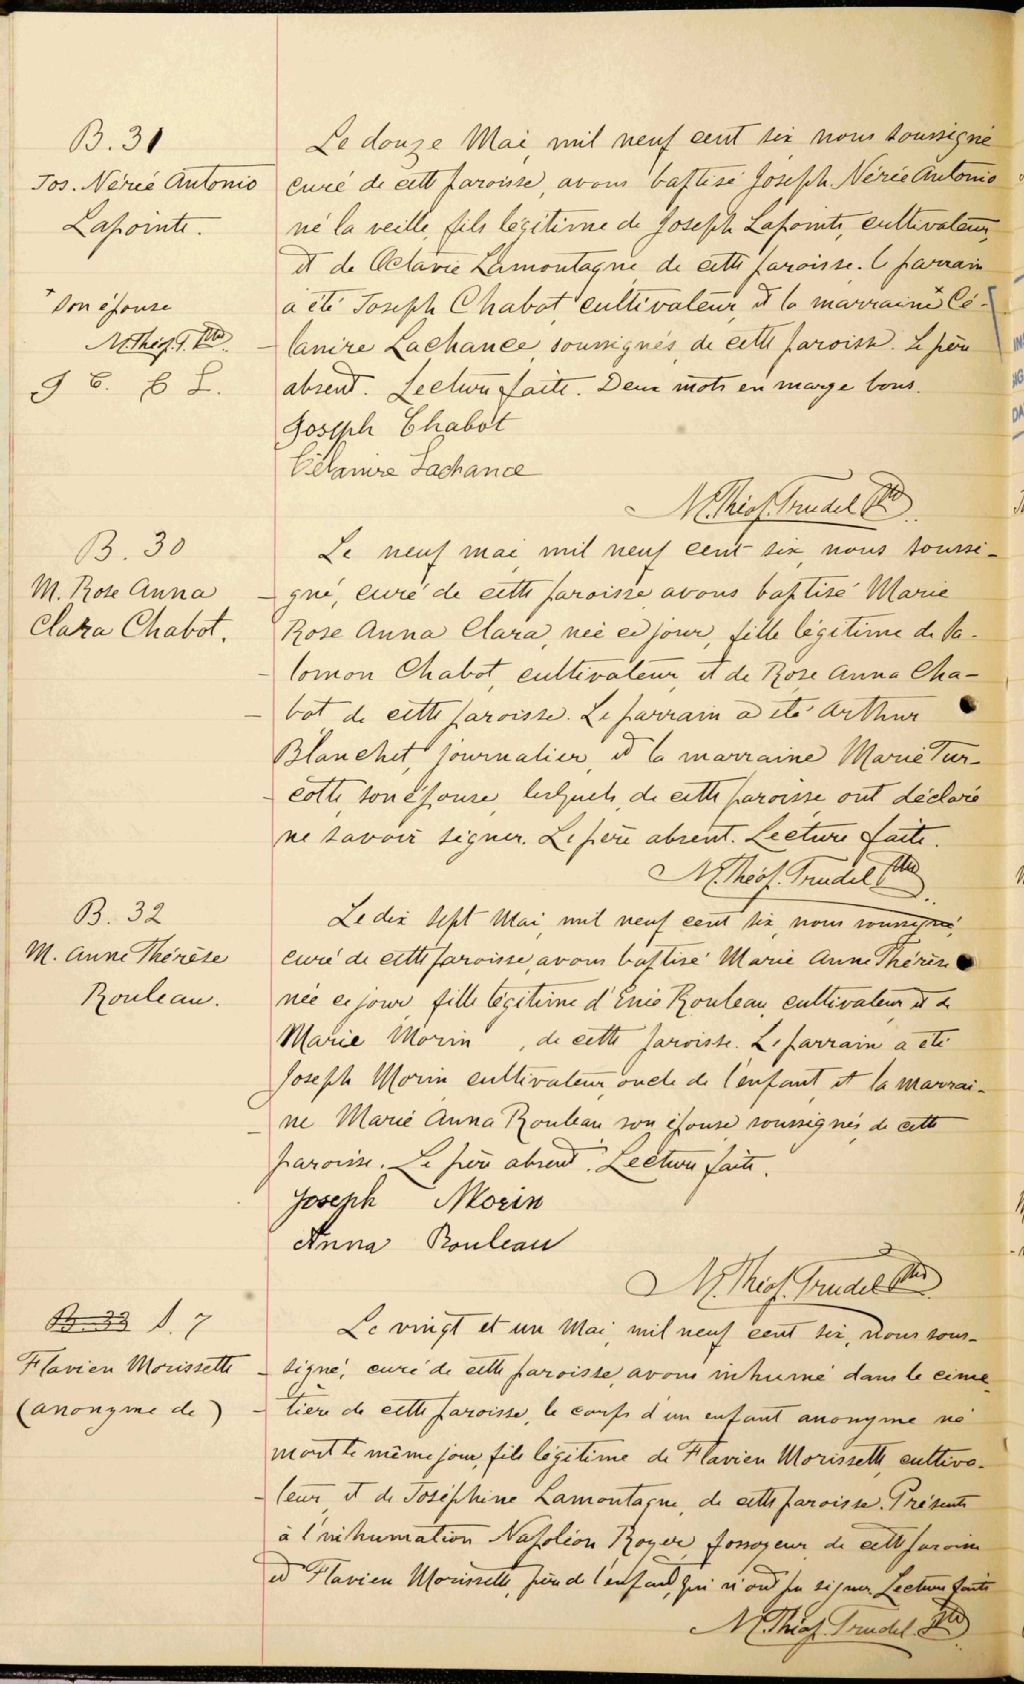 B. 31
Jos. Nérée Antonio
Lapointe.
+ son épouse
M. Théop. T. Ptre
J C. C L.
Le douze Mai, mil neuf cent six nous soussigné
curé de cette paroisse, avons baptisé Joseph Nérée Antonio
né la veille, fils légitime de Joseph Lapointe, cultivateur,
et de Octavie Lamontagne de cette paroisse. Le parrain
a été Joseph Chabot, cultivateur, et la marraine + Cé-
lanire Lachance, soussignés, de cette paroisse. Le père
absent. Lecture faite. Deux mots en marge bons.
Joseph Chabot
Célanire Lachance
M. Théop. Trudel Ptre
B. 30
M. Rose Anna
Clara Chabot.
Le neuf mai, mil neuf cent six, nous soussi-
gné, curé de cette paroisse avons baptisé Marie
Rose Anna Clara, née ce jour, fille légitime de Sa-
lomon Chabot, cultivateur, et de Rose Anna Cha-
bot, de cette paroisse. Le parrain a été Arthur
Blanchet, journalier, et la marraine Marie Tur-
cotte son épouse, lesquels, de cette paroisse, ont déclaré
ne savoir signer. Le père absent. Lecture faite.
M. Théop. Trudel Ptre
B. 32
M. Anne Thérèse
Rouleau.
Le dix sept Mai, mil neuf cent six, nous soussigné,
curé de cette paroisse, avons baptisé Marie Anne Thérèse
née ce jour, fille légitime d'Enée Rouleau, cultivateur, et de
Marie Morin , de cette paroisse. Le parrain a été
Joseph Morin cultivateur, oncle de l'enfant, et la marrai-
ne Marie Anna Rouleau, son épouse soussignés, de cette
paroisse. Le père absent. Lecture faite.
Joseph Morin
Anna Rouleau
M. Théop. Trudel Ptre
B. 33 S. 7
Flavien Morissette
(anonyme de)
Le vingt et un Mai, mil neuf cent six, nous sous-
signé, curé de cette paroisse, avons inhumé dans le cime-
tière de cette paroisse, le corps d'un enfant anonyme né
mort le même jour, fils légitime de Flavien Morissette, cultiva-
teur, et de Joséphine Lamontagne, de cette paroisse. Présents
à l'inhumation Napoléon Royer, fossoyeur de cette paroisse
et Flavien Morissette, père de l'enfant, qui n'ont pu signer. Lecture faite
M. Théop. Trudel Ptre